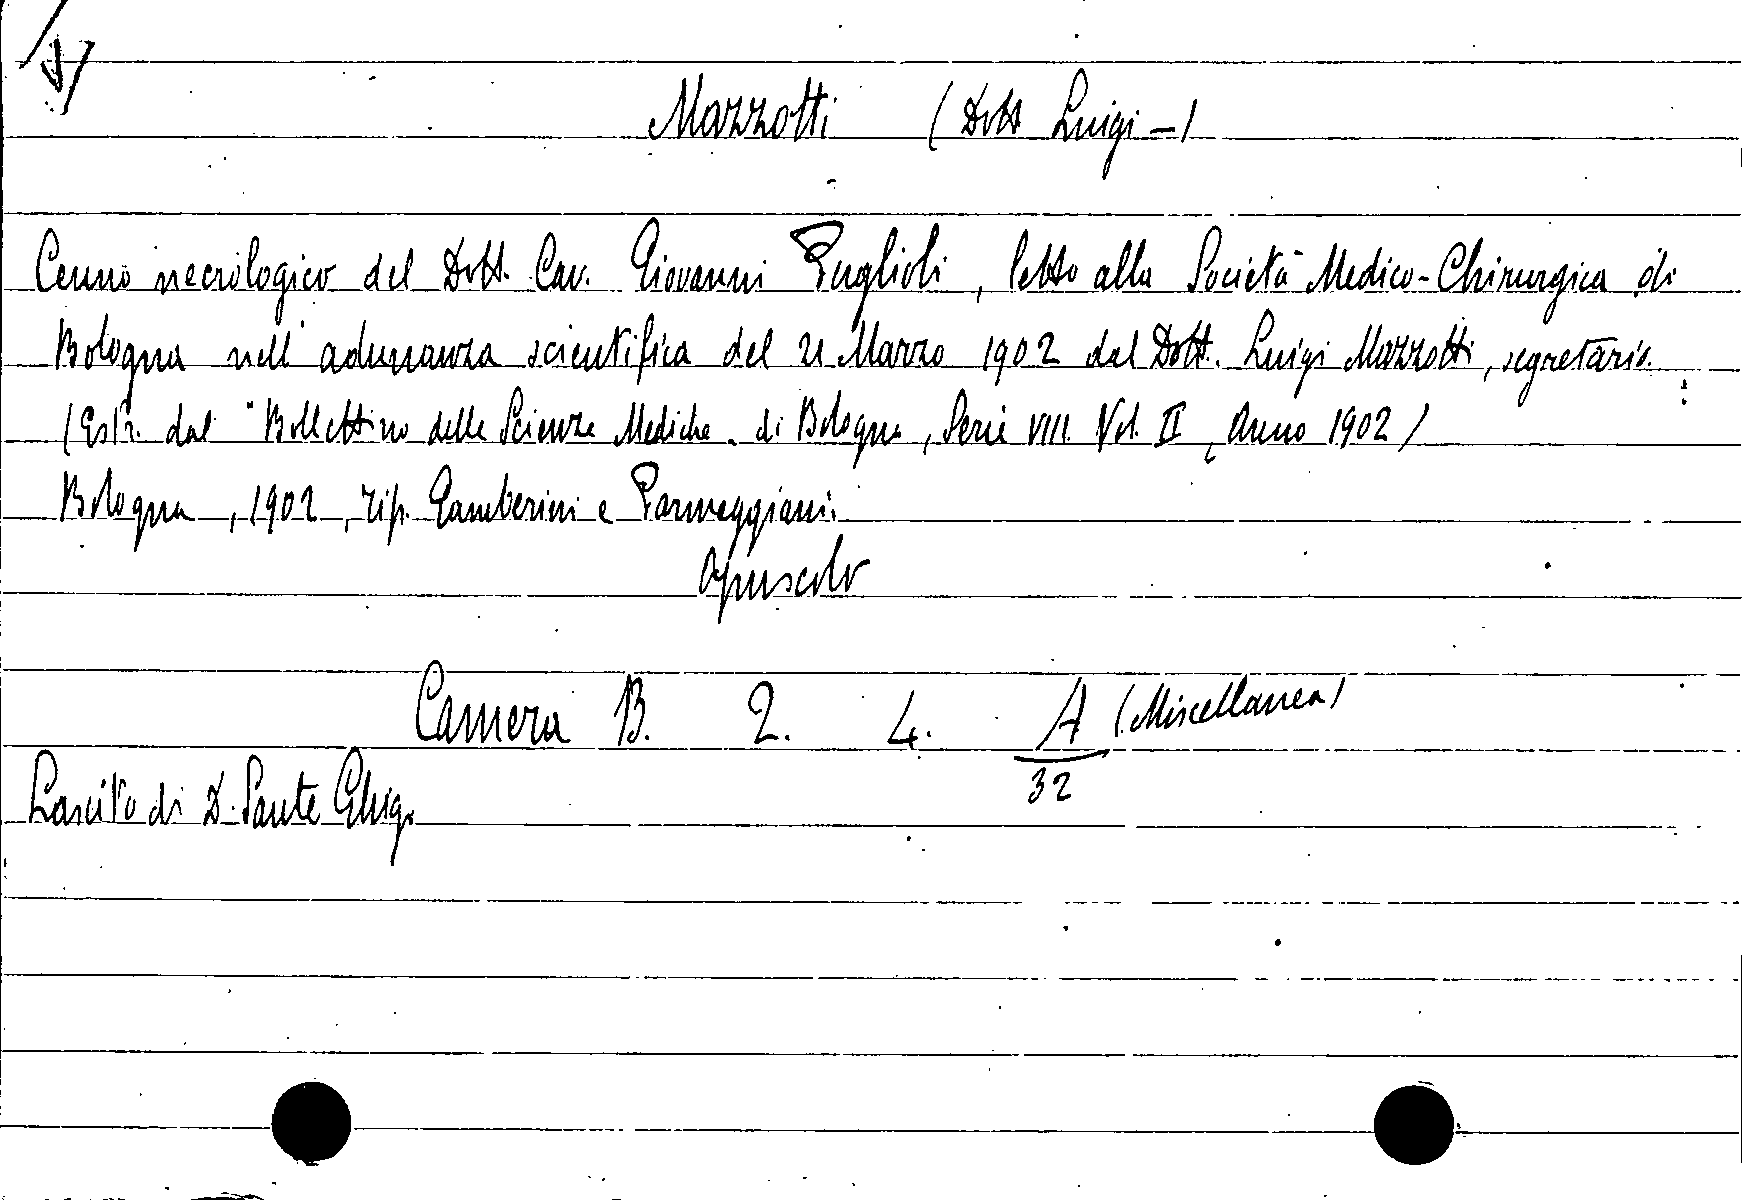 Mazzotti (Dott Luigi -)
Cenno necrologico del Dott. Cav. Giovanni Puglioli, letto alla Società Medico-Chirurgica di
Bologna nell'adunanza scientifica del 21 Marzo 1902 dal Dott. Luigi Mazzotti, segretario.
(Estr. dal "Bollettino delle Scienze Mediche. di Bologna, Serie VIII. Vol. II, Anno 1902)
Bologna, 1902, tip. Gamberini e Parmeggiani.
Opuscolo
Camera B. 2. 4. A (Miscellanea)
32
Lascito di D. Sante Ghig.